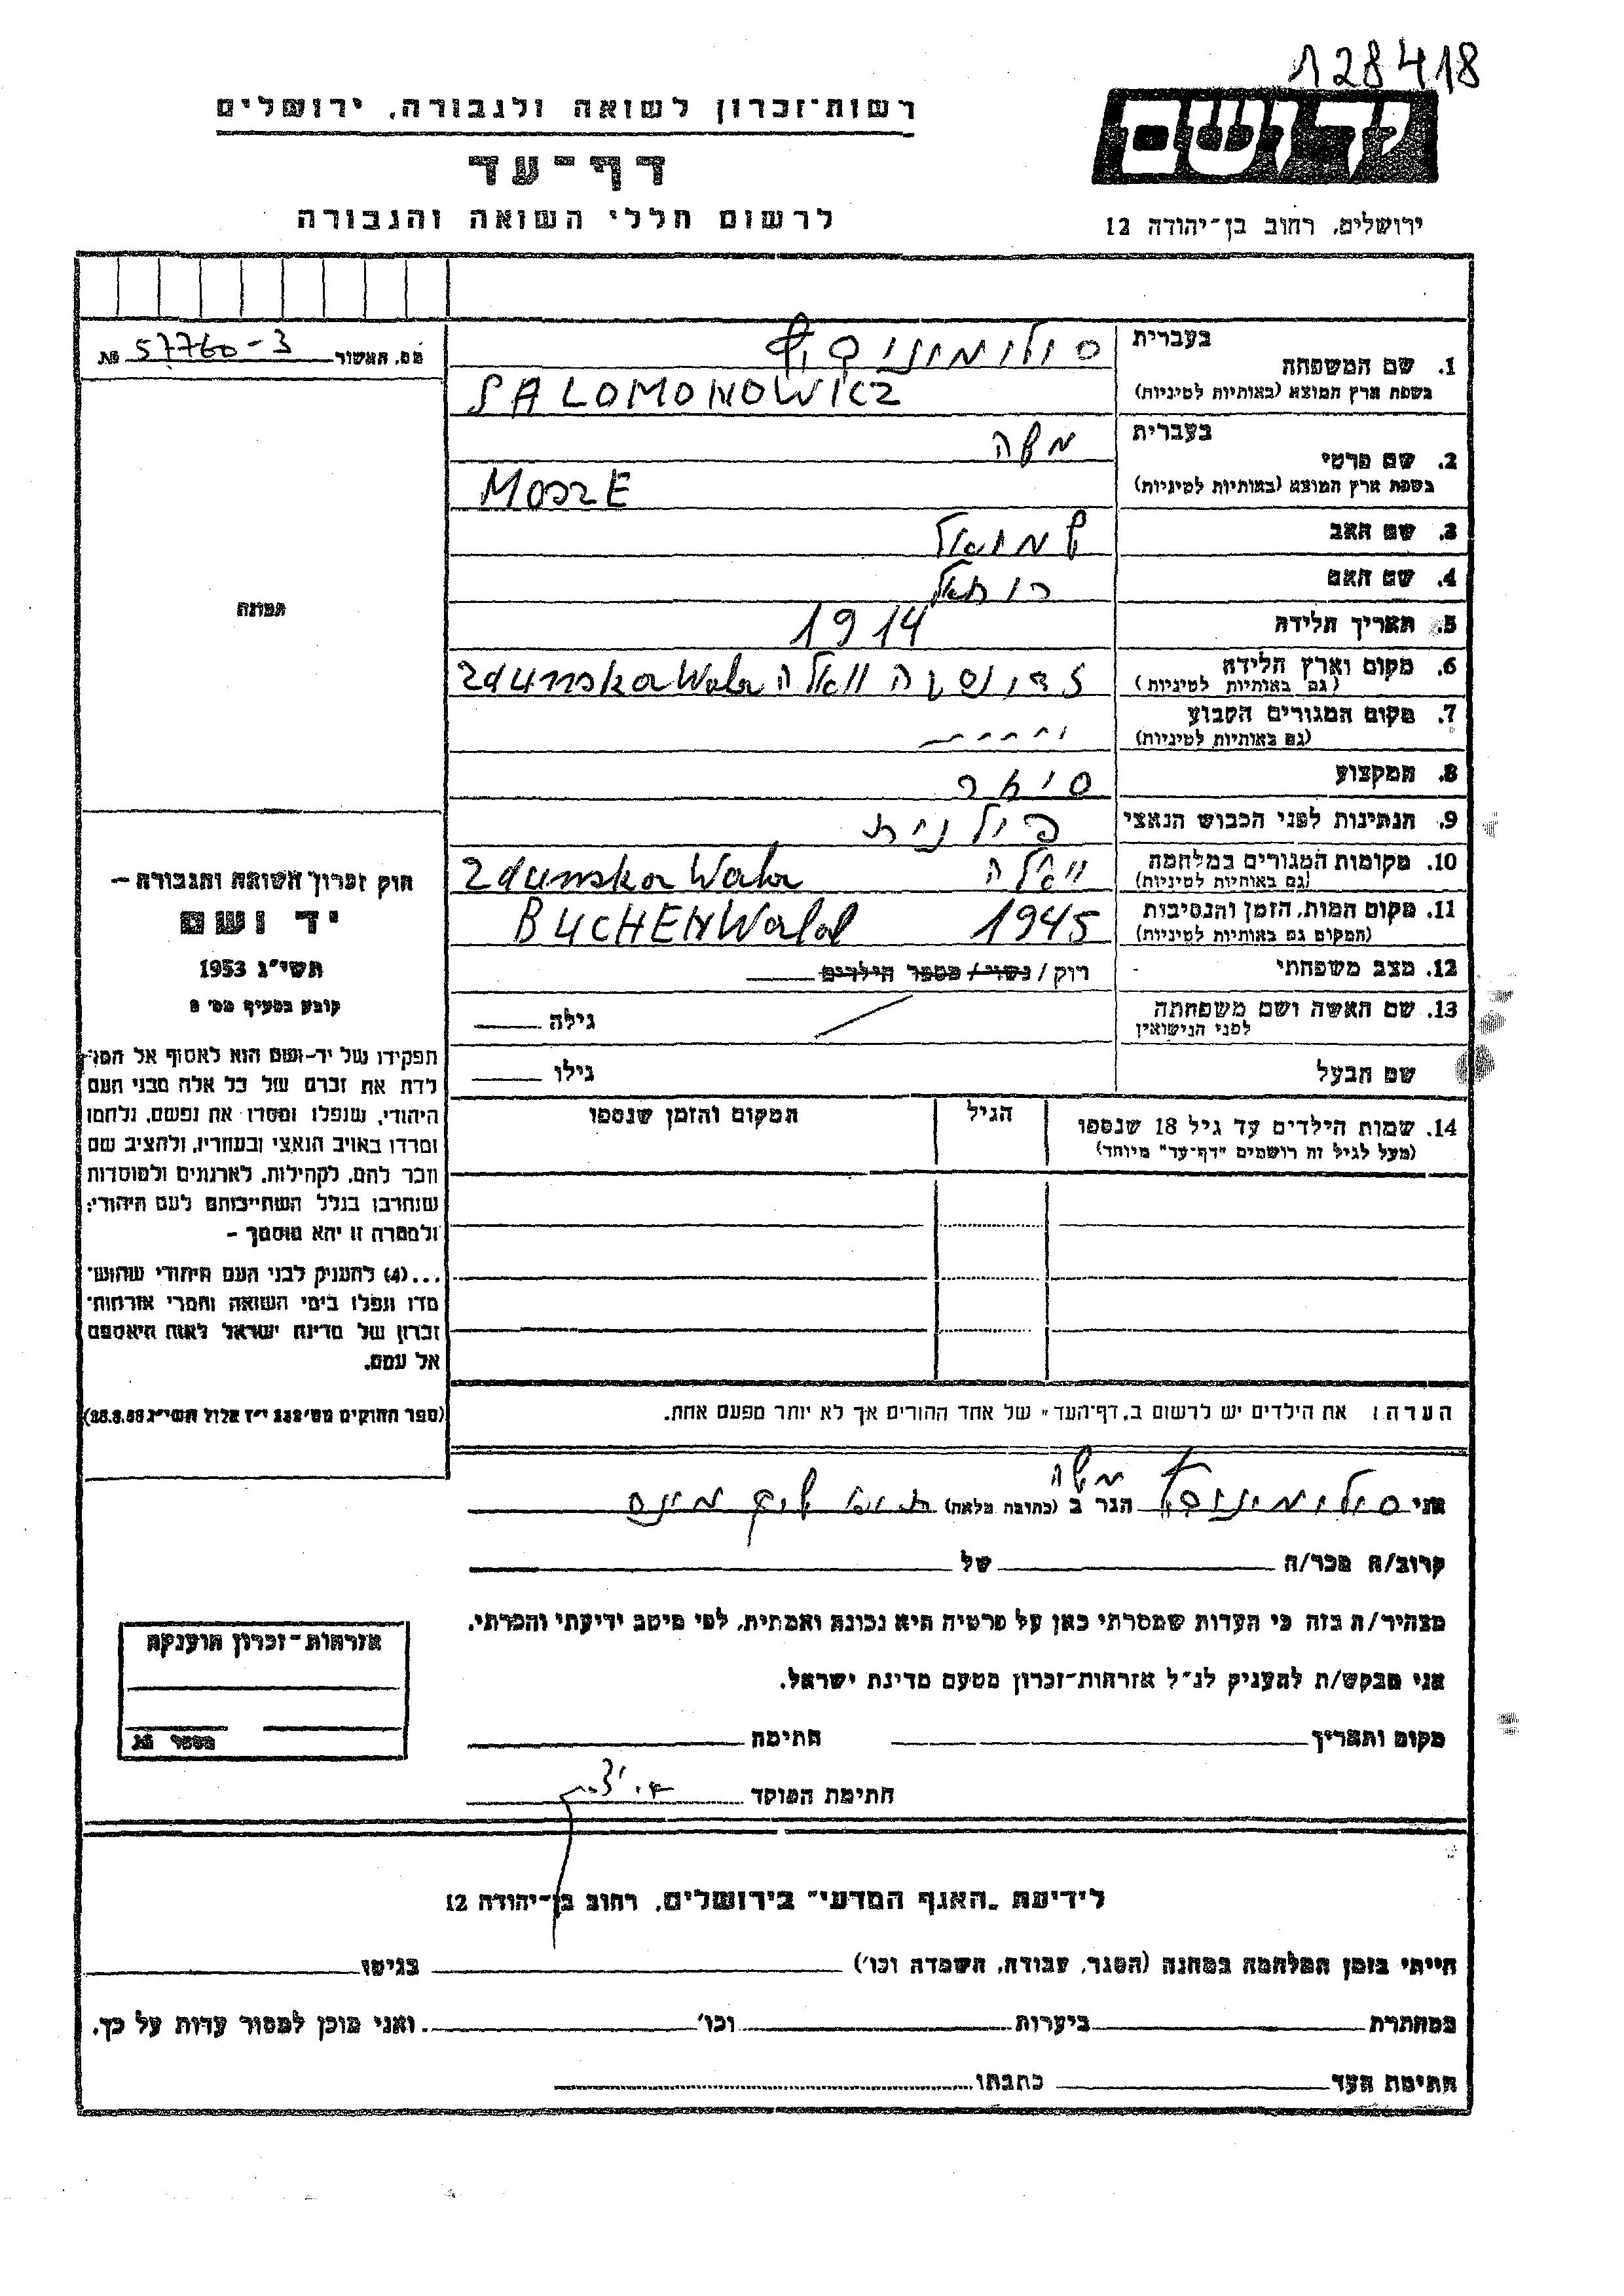 128418
רשות־זכרון לשואה ולגבורה, ירושלים
יד ושם
דף־עד
לרשום חללי השואה והגבורה
ירושלים, רחוב בן־יהודה 12
מס. האשור 57760-3 №
בעברית
1. שם המשפחה
בשפת ארץ המוצא (באותיות לטיניות) SALOMONOWICZ
בעברית משה
2. שם פרטי
בשפת ארץ המוצא (באותיות לטיניות) MOSZE
3. שם האב שמואל
4. שם האם
5. תאריך הלידה 1914
6. מקום וארץ הלידה זדונסקה וואלה Zdunska Wola
(גם באותיות לטיניות)
7. מקום המגורים הקבוע
(גם באותיות לטיניות)
8. המקצוע סוחר
9. הנתינות לפני הכבוש הנאצי פולנית
10. מקומות המגורים במלחמה וואלה Zdunska Wola
(גם באותיות לטיניות)
11. מקום המות, הזמן והנסיבות 1945 BUCHENWald
(המקום גם באותיות לטיניות)
12. מצב משפחתי רוק / נשוי / מספר הילדים
13. שם האשה ושם משפחתה גילה
לפני הנישואין
שם הבעל גילו
14. שמות הילדים עד גיל 18 שנספו הגיל המקום והזמן שנספו
(מעל לגיל זה רושמים "דף־עד" מיוחד)
הערה: את הילדים יש לרשום ב„דף־העד" של אחד ההורים אך לא יותר מפעם אחת.
תמונה
חוק זכרון השואה והגבורה –
יד ושם
תשי"ג 1953
קובע בסעיף מס' 2
תפקידו של יד־ושם הוא לאסוף אל המו־
לדת את זכרם של כל אלה מבני העם
היהודי, שנפלו ומסרו את נפשם, נלחמו
ומרדו באויב הנאצי ובעוזריו, ולהציב שם
וזכר להם, לקהילות, לארגונים ולמוסדות
שנחרבו בגלל השתייכותם לעם היהודי;
ולמטרה זו יהא מוסמך –
...(4) להעניק לבני העם היהודי שהוש־
מדו ונפלו בימי השואה והמרי אזרחות־
זכרון של מדינת ישראל לאות היאספם
אל עמם.
(ספר החוקים מס' 132 י"ז אלול תשי"ג 28.8.53)
משה
אני הגר ב (כתובת מלאה)
קרוב/ה מכר/ה של
מצהיר/ה בזה כי העדות שמסרתי כאן על פרטיה היא נכונה ואמתית, לפי מיטב ידיעתי והכרתי.
אני מבקש/ת להעניק לנ"ל אזרחות־זכרון מטעם מדינת ישראל.
מקום ותאריך חתימה
חתימת הפוקד
אזרחות־זכרון הוענקה
מספר №
לידיעת „האגף המדעי" בירושלים, רחוב בן־יהודה 12
הייתי בזמן המלחמה במחנה (הסגר, עבודה, השמדה וכו') בגיטו
במחתרת ביערות וכו' ואני מוכן למסור עדות על כך.
חתימת העד כתבתו